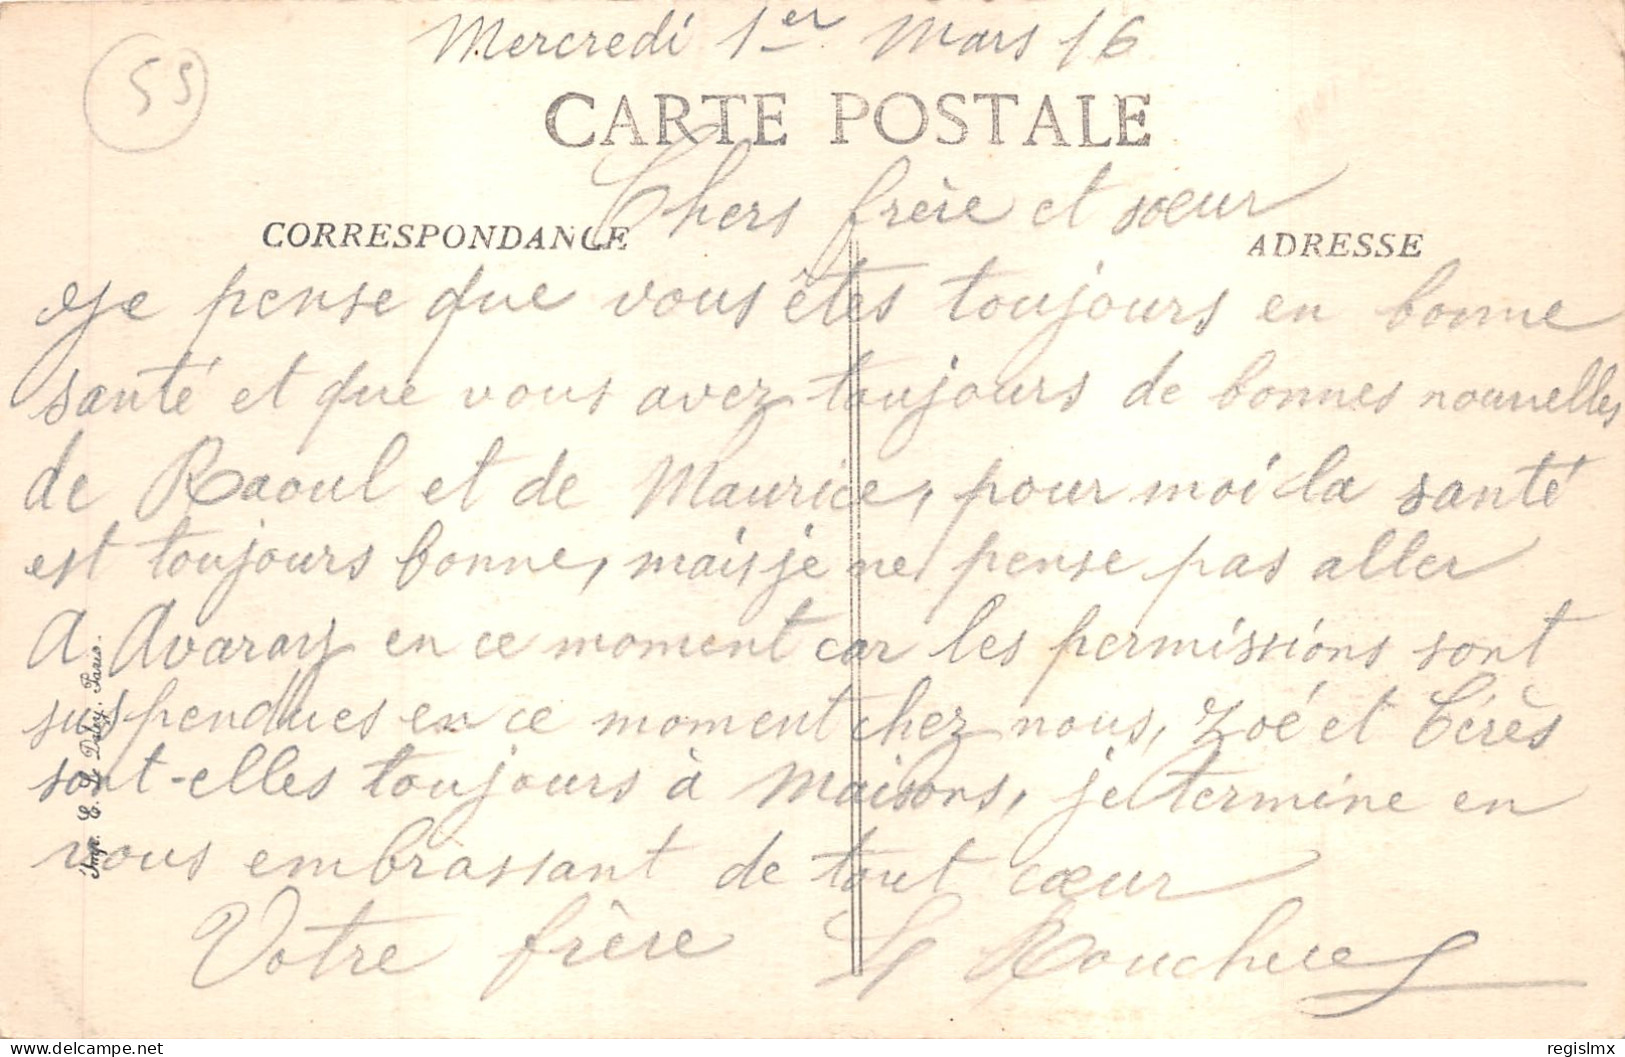 Mercredi 1er Mars 16
55
CARTE POSTALE
Chers frère et sœur
CORRESPONDANCE
ADRESSE
Je pense que vous êtes toujours en bonne
santé et que vous avez toujours de bonnes nouvelles
de Raoul et de Maurice, pour moi la santé
est toujours bonne, mais je ne pense pas aller
A Avaray en ce moment car les permissions sont
suspendues en ce moment chez nous, Zoé et Cérès
sont-elles toujours à Maisons, je termine en
vous embrassant de tout cœur
Votre frère
Imp. E. Le Deley, Paris.
delcampe.net
regislmx